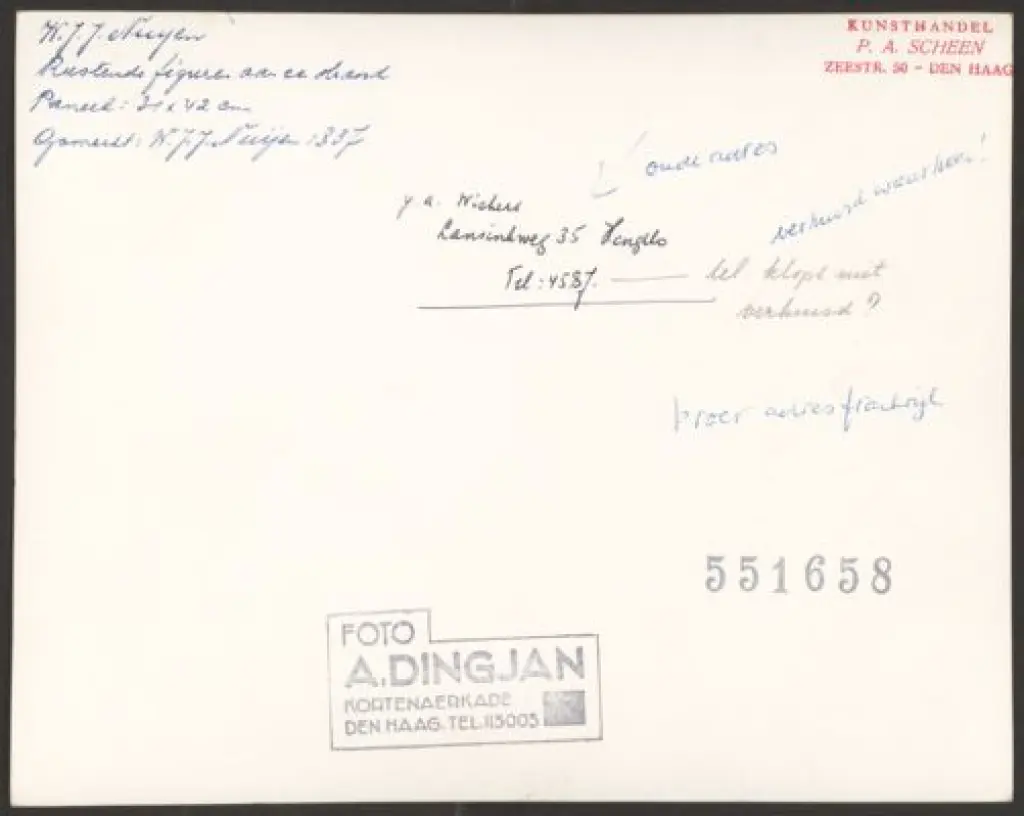 W.J.J. Nuijen
Rustende figuren aan een strand
Paneel: 31 x 42 cm
Gemerkt: W.J.J. Nuijen 1837
KUNSTHANDEL
P. A. SCHEEN
ZEESTR. 50 - DEN HAAG
oude adres
verhuisd waarheen!
Lansinkweg 35 Hengelo
Tel: 4587. — tel klopt niet
verhuisd?
adres frankrijk
551658
FOTO
A. DINGJAN
KORTENAERKADE
DEN HAAG. TEL. 115005